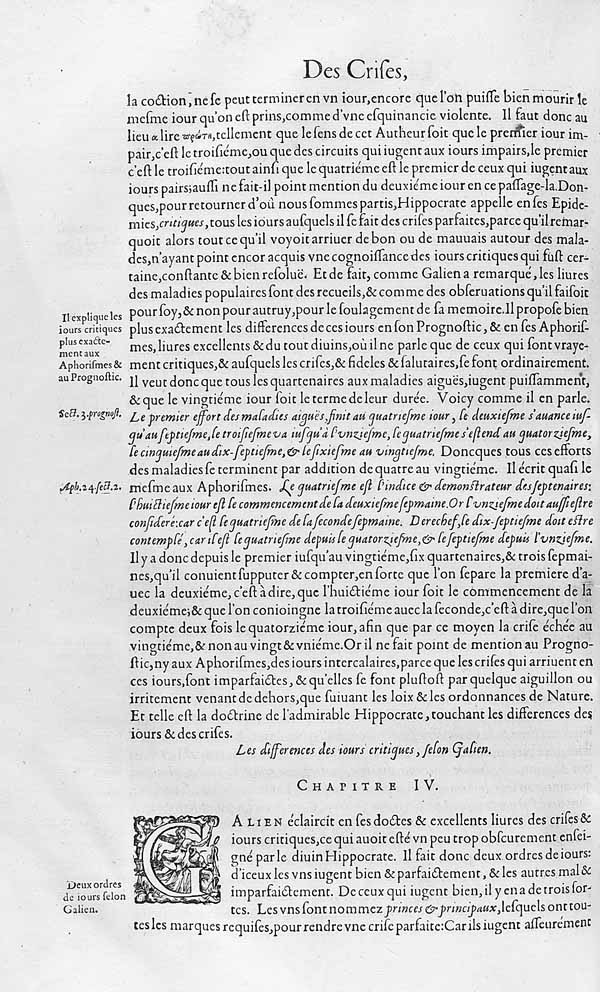 Des Criſes,
la coction, ne ſe peut terminer en vn iour, encore que l'on puiſſe bien mourir le
meſme iour qu'on eſt prins, comme d'vne eſquinancie violente. Il faut donc au
lieu α lire πρώτη, tellement que le ſens de cet Autheur ſoit que le premier iour im-
pair, c'eſt le troiſiéme, ou que des circuits qui iugent aux iours impairs, le premier
c'eſt le troiſiéme: tout ainſi que le quatriéme eſt le premier de ceux qui iugent aux
iours pairs; auſſi ne fait-il point mention du deuxiéme iour en ce paſſage-la. Don-
ques, pour retourner d'où nous ſommes partis, Hippocrate appelle en ſes Epide-
mies, critiques, tous les iours auſquels il ſe fait des criſes parfaites, parce qu'il remar-
quoit alors tout ce qu'il voyoit arriuer de bon ou de mauuais autour des mala-
des, n'ayant point encor acquis vne cognoiſſance des iours critiques qui fuſt cer-
taine, conſtante & bien reſoluë. Et de fait, comme Galien a remarqué, les liures
des maladies populaires ſont des recueils, & comme des obſeruations qu'il faiſoit
Il explique les
iours critiques
plus exacte-
ment aux
Aphoriſmes &
au Prognoſtic.
pour ſoy, & non pour autruy, pour le ſoulagement de ſa memoire. Il propoſe bien
plus exactement les differences de ces iours en ſon Prognoſtic, & en ſes Aphoriſ-
mes, liures excellents & du tout diuins, où il ne parle que de ceux qui ſont vraye-
ment critiques, & auſquels les criſes, & fideles & ſalutaires, ſe font ordinairement.
Il veut donc que tous les quartenaires aux maladies aiguës, iugent puiſſamment,
& que le vingtiéme iour ſoit le terme de leur durée. Voicy comme il en parle.
Sect. 3. prognoſt.
Le premier effort des maladies aiguës, finit au quatrieſme iour, le deuxieſme s'auance iuſ-
qu'au ſeptieſme, le troiſieſme va iuſqu'à l'vnzieſme, le quatrieſme s'eſtend au quatorzieſme,
le cinquieſme au dix-ſeptieſme, & le ſixieſme au vingtieſme. Doncques tous ces efforts
des maladies ſe terminent par addition de quatre au vingtiéme. Il écrit quaſi le
Aph. 24. ſect. 2.
meſme aux Aphoriſmes. Le quatrieſme eſt l'indice & demonſtrateur des ſeptenaires:
l'huictieſme iour eſt le commencement de la deuxieſme ſepmaine. Or l'vnzieſme doit auſſi eſtre
conſideré: car c'eſt le quatrieſme de la ſeconde ſepmaine. Derechef, le dix-ſeptieſme doit eſtre
contemplé, car il eſt le quatrieſme depuis le quatorzieſme, & le ſeptieſme depuis l'vnzieſme.
Il y a donc depuis le premier iuſqu'au vingtiéme, ſix quartenaires, & trois ſepmai-
nes, qu'il conuient ſupputer & compter, en ſorte que l'on ſepare la premiere d'a-
uec la deuxiéme, c'eſt à dire, que l'huictiéme iour ſoit le commencement de la
deuxiéme; & que l'on conioingne la troiſiéme auec la ſeconde, c'eſt à dire, que l'on
compte deux fois le quatorziéme iour, afin que par ce moyen la criſe échée au
vingtiéme, & non au vingt & vniéme. Or il ne fait point de mention au Progno-
ſtic, ny aux Aphoriſmes, des iours intercalaires, parce que les criſes qui arriuent en
ces iours, ſont imparfaictes, & qu'elles ſe font pluſtoſt par quelque aiguillon ou
irritement venant de dehors, que ſuiuant les loix & les ordonnances de Nature.
Et telle eſt la doctrine de l'admirable Hippocrate, touchant les differences des
iours & des criſes.
Les differences des iours critiques, ſelon Galien.
CHAPITRE IV.
GALIEN éclaircit en ſes doctes & excellents liures des criſes &
iours critiques, ce qui auoit eſté vn peu trop obſcurement enſei-
gné par le diuin Hippocrate. Il fait donc deux ordres de iours:
Deux ordres
de iours ſelon
Galien.
d'iceux les vns iugent bien & parfaictement, & les autres mal &
imparfaictement. De ceux qui iugent bien, il y en a de trois ſor-
tes. Les vns ſont nommez princes & principaux, leſquels ont tou-
tes les marques requiſes, pour rendre vne criſe parfaite: Car ils iugent aſſeurément